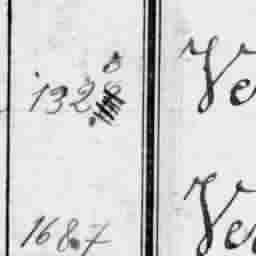 1328 Ve
1687 Ve